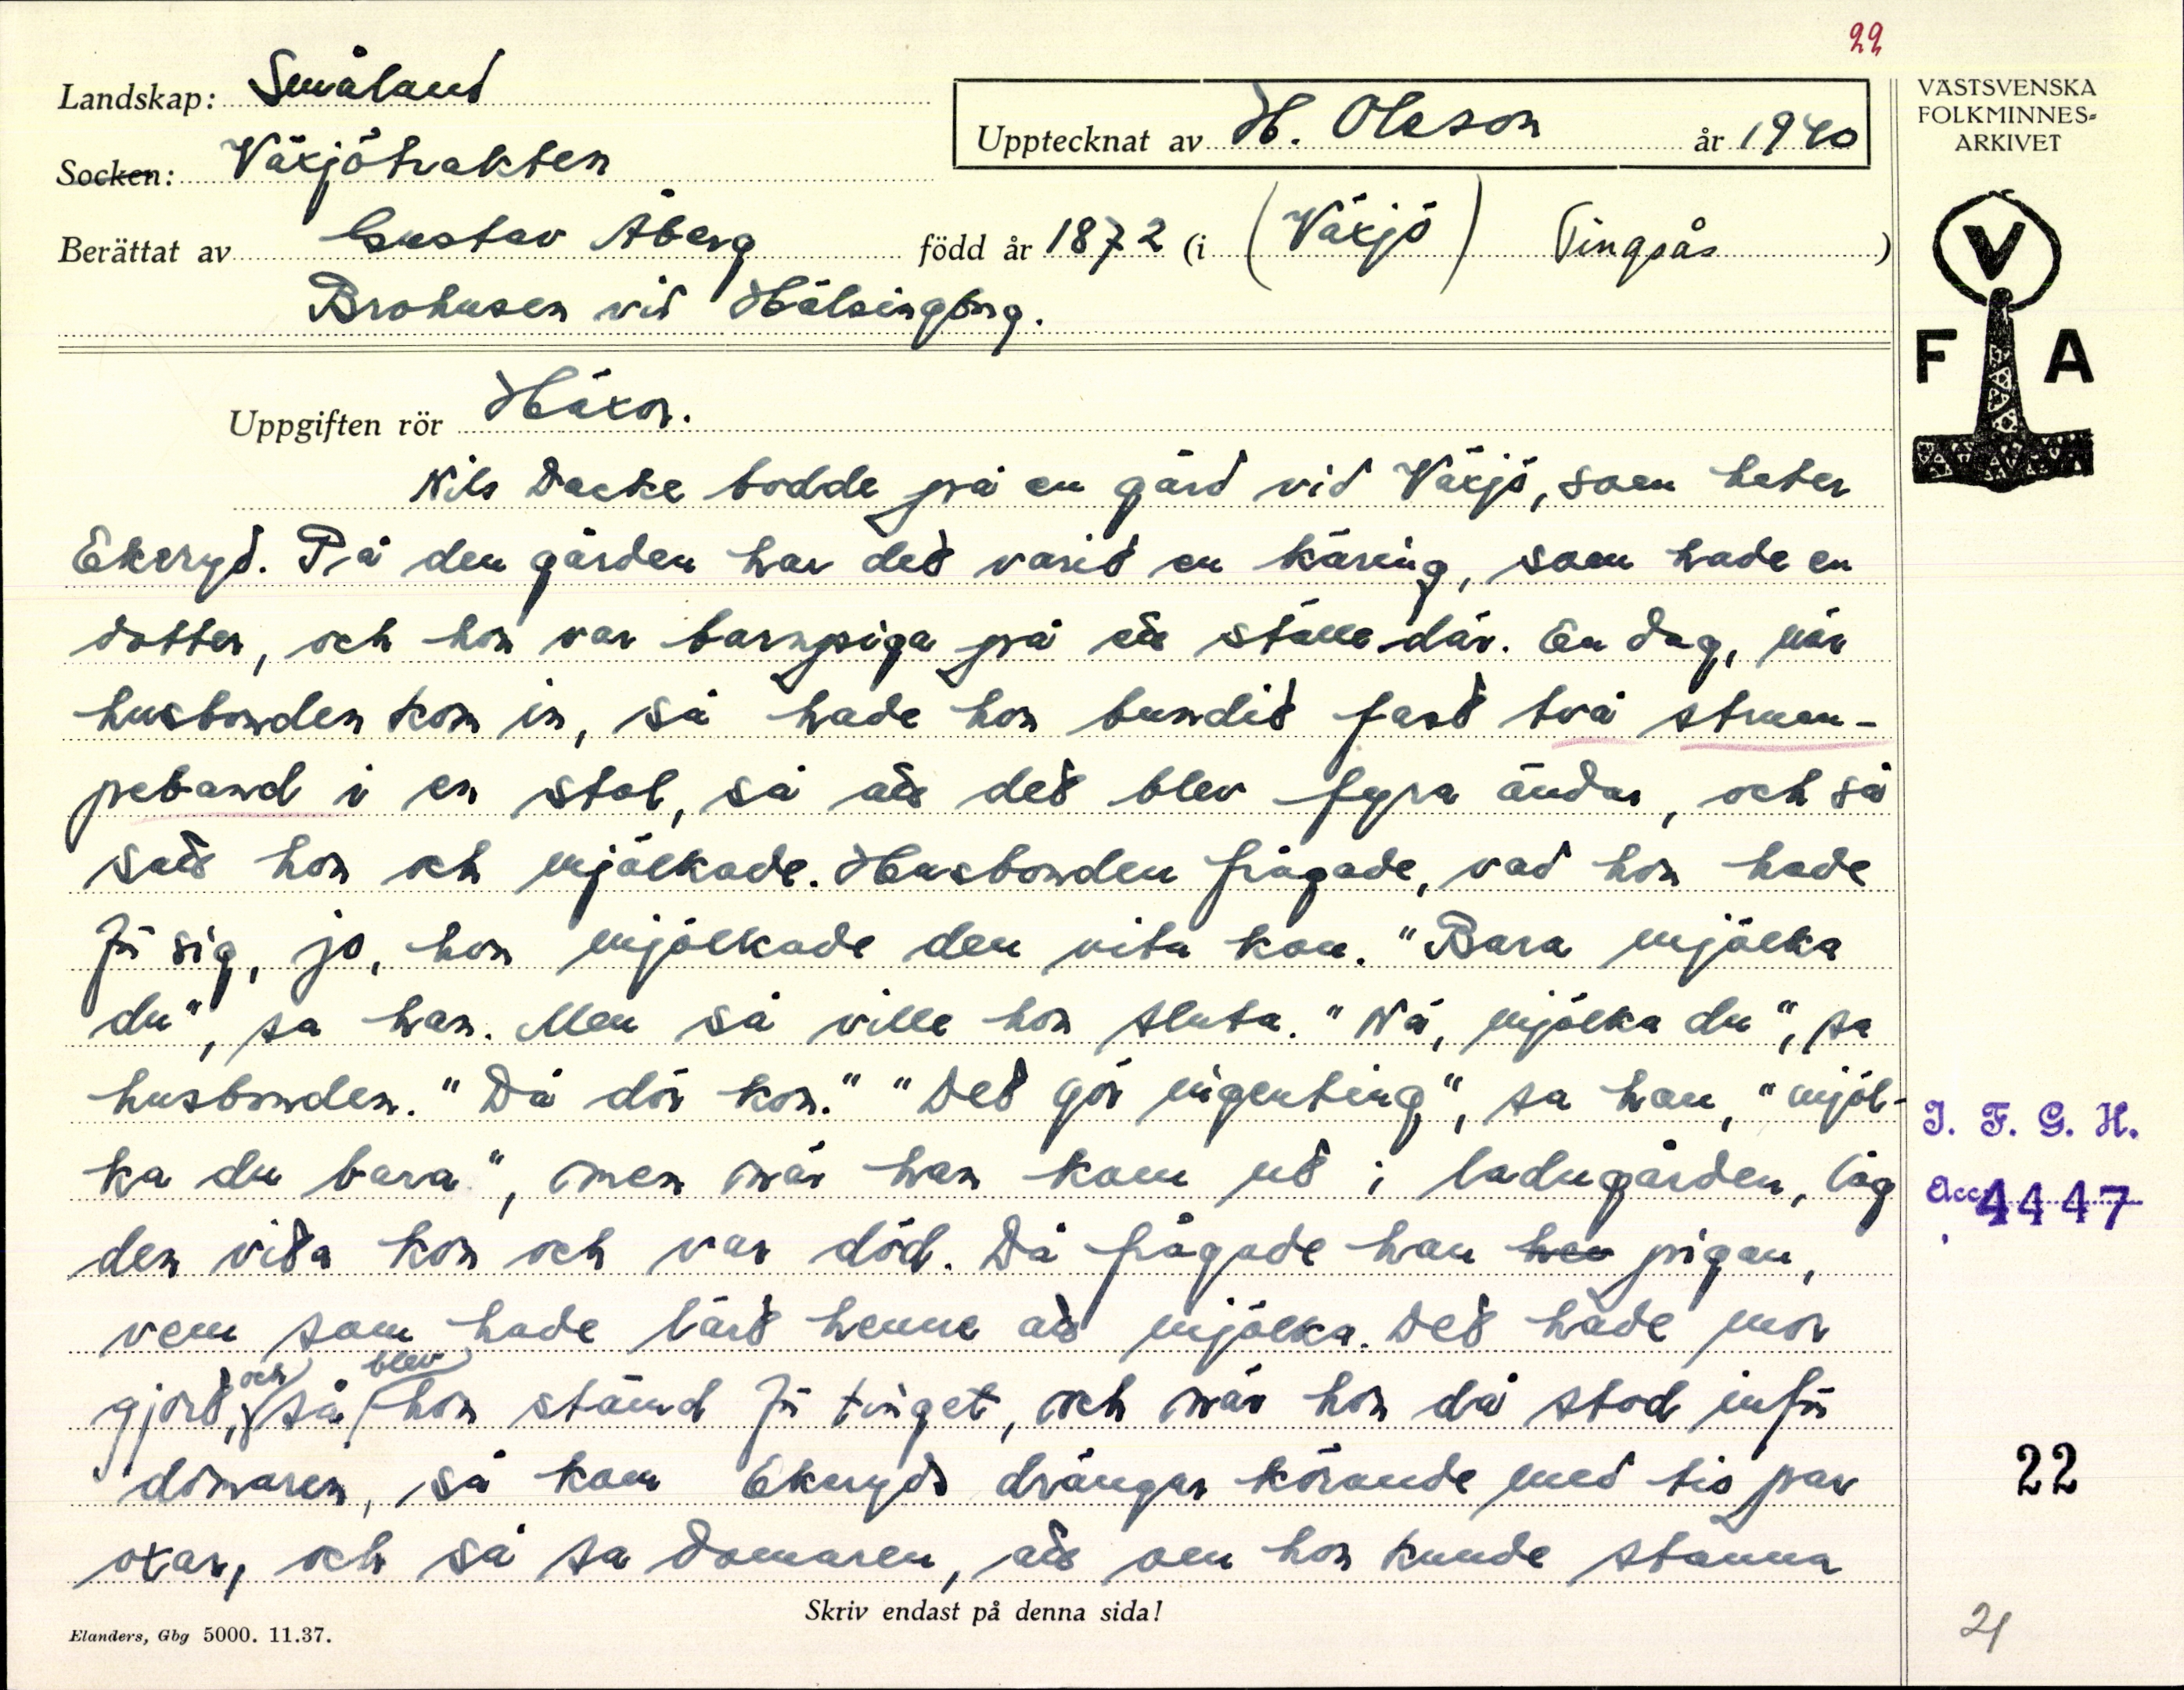 22
Landskap: Småland
Socken: Växjötrakten
Upptecknat av H. Olsson år 1940
VÄSTSVENSKA
FOLKMINNES-
ARKIVET
Berättat av Gustav Åberg född år 1872 (i (Växjö) Tingsås)
Brohusen vid Hälsingborg.
V
F A
Uppgiften rör Häxor.
Nils Dacke bodde på en gård vid Växjö, som heter
Ekeryd. På den gården har det varit en käring, som hade en
dotter, och hon var barnpiga på ett ställe där. En dag, när
husbonden kom in, så hade hon bundit fast två strum-
peband i en stol, så att det blev fyra ändar, och så
satt hon och mjölkade. Husbonden frågade, vad hon hade
för sig, jo, hon mjölkade den vita kon. "Bara mjölka
du", sa han. Men så ville hon sluta. "Nä, mjölka du", sa
husbonden. "Då dör kon." "Det gör ingenting", sa han, "mjöl-
ka du bara", men när han kom ut i ladugården, låg
den vita kon och var död. Då frågade han hen pigan,
vem som hade lärt henne att mjölka. Det hade mor
gjort, och så blev hon stämd för tinget, och när hon då stod inför
domaren, så kom Ekeryds drängar körande med tio par
oxar, och så sa domaren, att om hon kunde stanna
I. F. G. H.
Acc. 4447
22
21
Skriv endast på denna sida!
Elanders, Gbg 5000. 11.37.